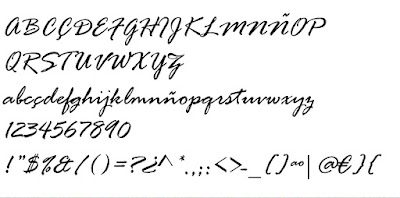 ABCÇDEFGHIJKLMNÑOP
QRSTUVWXYZ
abcçdefghijklmnñopqrstuvwxyz
1234567890
!"$%&/()=?¿^*.,;:<>-_[]ªº|@€}{